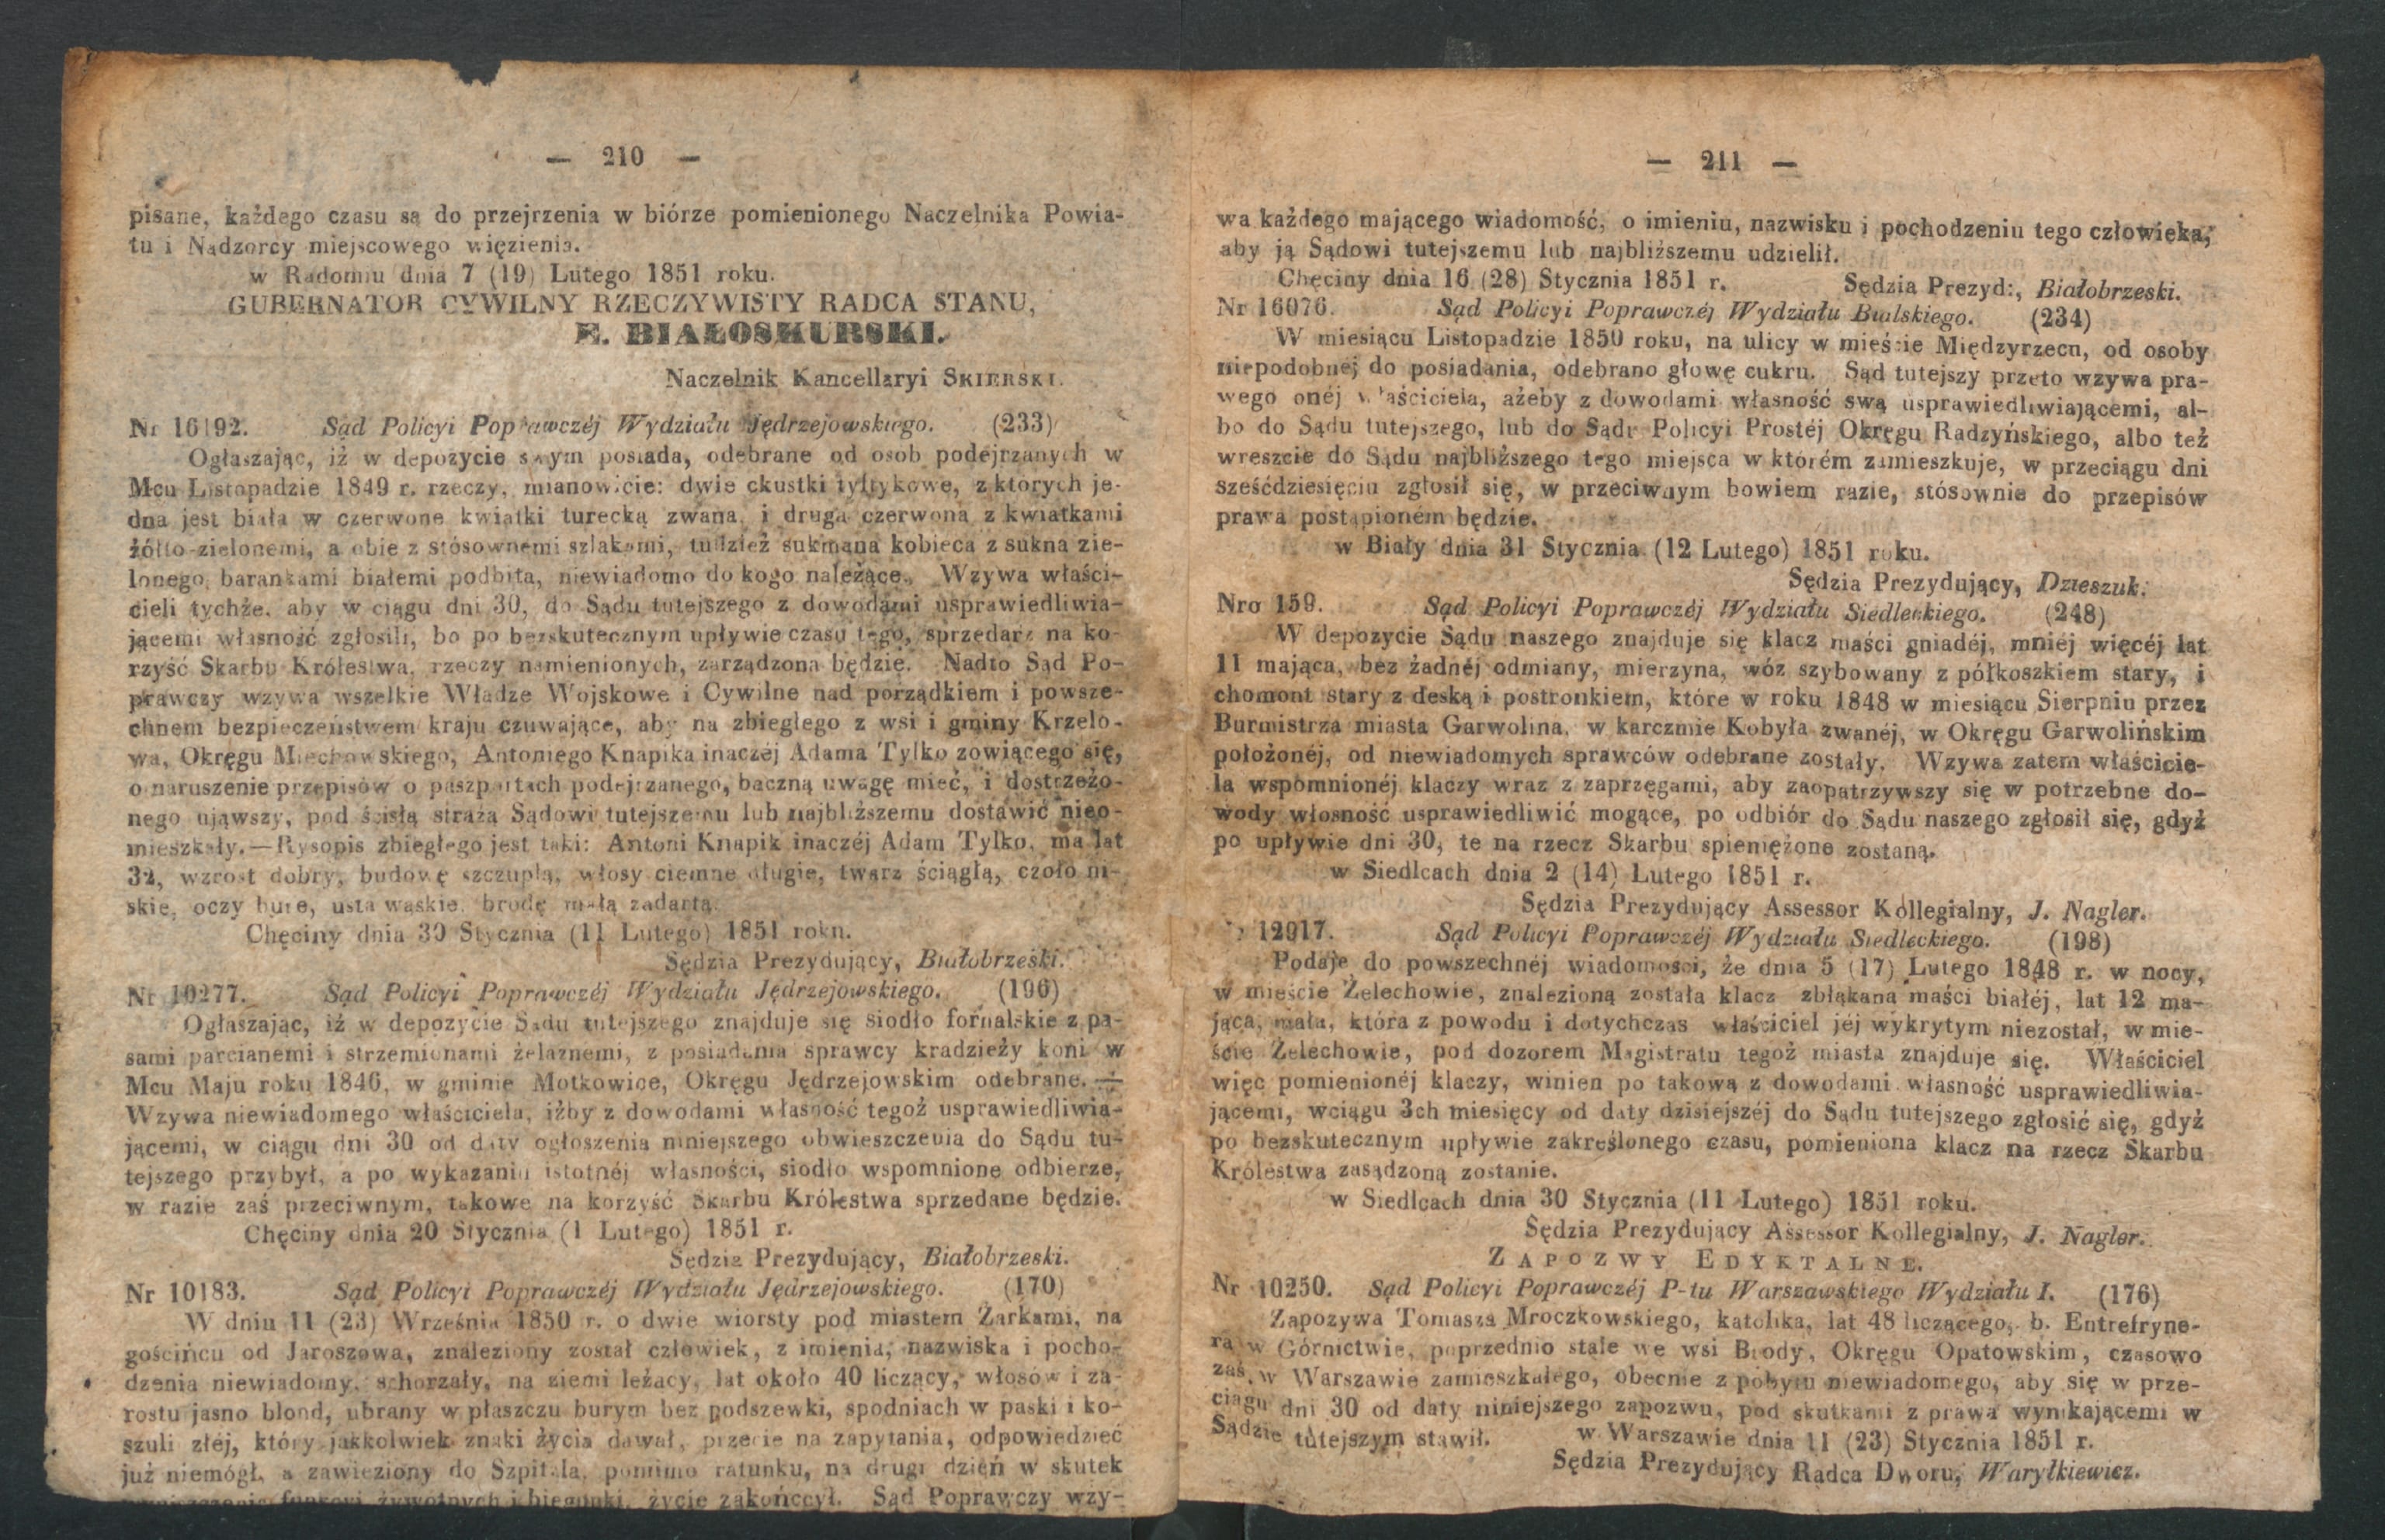 — 210 —
pisane, każdego czasu są do przejrzenia w biórze pomienionego Naczelnika Powia-
tu i Nadzorcy miejscowego więzienia.
w Radomiu dnia 7 (19) Lutego 1851 roku.
GUBERNATOR CYWILNY RZECZYWISTY RADCA STANU,
E. BIAŁOSKURSKI.
Naczelnik Kancellaryi SKIERSKI.
Nr 16192. Sąd Policyi Poprawczéj Wydziału Jędrzejowskiego. (233)
Ogłaszając, iż w depozycie swym posiada, odebrane od osob podejrzanych w
Mcu Listopadzie 1849 r. rzeczy, mianowicie: dwie ckustki tyftykowe, z których je-
dna jest biała w czerwone kwiatki turecką zwana, i druga czerwona z kwiatkami
żółto-zielonemi, a obie z stósownemi szlakami, tudzież sukmana kobieca z sukna zie-
lonego barankami białemi podbita, niewiadomo do kogo należące. Wzywa właści-
cieli tychże, aby w ciągu dni 30, do Sądu tutejszego z dowodami usprawiedliwia-
jącemi własność zgłosili, bo po bezskutecznym upływie czasu tego, sprzedarz na ko-
rzyść Skarbu Królestwa, rzeczy namienionych, zarządzona będzie. Nadto Sąd Po-
prawczy wzywa wszelkie Władze Wojskowe i Cywilne nad porządkiem i powsze-
chnem bezpieczeństwem kraju czuwające, aby na zbiegłego z wsi i gminy Krzelo-
wa, Okręgu Miechowskiego, Antoniego Knapika inaczéj Adama Tylko zowiącego się,
o naruszenie przepisów o paszportach podejrzanego, baczną uwagę mieć, i dostrzeżo-
nego ująwszy, pod ścisłą strażą Sądowi tutejszemu lub najbliższemu dostawić nieo-
mieszkały.—Rysopis zbiegłego jest taki: Antoni Knapik inaczéj Adam Tylko, ma lat
32, wzrost dobry, budowę szczupłą, włosy ciemne długie, twarz ściągłą, czoło ni-
skie, oczy bure, usta wąskie, brodę małą zadartą.
Chęciny dnia 30 Stycznia (11 Lutego) 1851 roku.
Sędzia Prezydujący, Białobrzeski.
Nr 10277. Sąd Policyi Poprawczéj Wydziału Jędrzejowskiego. (196)
Ogłaszając, iż w depozycie Sądu tutejszego znajduje się siodło fornalskie z pa-
sami parcianemi i strzemionami żelaznemi, z posiadania sprawcy kradzieży koni w
Mcu Maju roku 1846, w gminie Motkowice, Okręgu Jędrzejowskim odebrane. —
Wzywa niewiadomego właściciela, iżby z dowodami własność tegoż usprawiedliwia-
jącemi, w ciągu dni 30 od daty ogłoszenia niniejszego obwieszczenia do Sądu tu-
tejszego przybył, a po wykazaniu istotnéj własności, siodło wspomnione odbierze,
w razie zaś przeciwnym, takowe na korzyść Skarbu Królestwa sprzedane będzie.
Chęciny dnia 20 Stycznia (1 Lutego) 1851 r.
Sędzia Prezydujący, Białobrzeski.
Nr 10183. Sąd Policyi Poprawczéj Wydziału Jędrzejowskiego. (170)
W dniu 11 (23) Września 1850 r. o dwie wiorsty pod miastem Żarkami, na
gościńcu od Jaroszowa, znaleziony został człowiek, z imienia, nazwiska i pocho-
dzenia niewiadomy, schorzały, na ziemi leżący, lat około 40 liczący, włosów i za-
rostu jasno blond, ubrany w płaszczu burym bez podszewki, spodniach w paski i ko-
szuli złéj, który jakkolwiek znaki życia dawał, przecie na zapytania, odpowiedzieć
już niemógł, a zawieziony do Szpitala, pomimo ratunku, na drugi dzień w skutek
funkcyi żywotnych i biegunki, życie zakończył. Sąd Poprawczy wzy-
— 211 —
wa każdego mającego wiadomość, o imieniu, nazwisku i pochodzeniu tego człowieka,
aby ją Sądowi tutejszemu lub najbliższemu udzielił.
Chęciny dnia 16 (28) Stycznia 1851 r. Sędzia Prezyd:, Białobrzeski.
Nr 16076. Sąd Policyi Poprawczéj Wydziału Bialskiego. (234)
W miesiącu Listopadzie 1850 roku, na ulicy w mieście Międzyrzecu, od osoby
niepodobnéj do posiadania, odebrano głowę cukru. Sąd tutejszy przeto wzywa pra-
wego onéj właściciela, ażeby z dowodami własność swą usprawiedliwiającemi, al-
bo do Sądu tutejszego, lub do Sądu Policyi Prostéj Okręgu Radzyńskiego, albo też
wreszcie do Sądu najbliższego tego miejsca w którém zamieszkuje, w przeciągu dni
sześćdziesięciu zgłosił się, w przeciwnym bowiem razie, stósownie do przepisów
prawa postąpioném będzie.
w Biały dnia 31 Stycznia (12 Lutego) 1851 roku.
Sędzia Prezydujący, Dzieszuk.
Nro 159. Sąd Policyi Poprawczéj Wydziału Siedleckiego. (248)
W depozycie Sądu naszego znajduje się klacz maści gniadéj, mniéj więcéj lat
11 mająca, bez żadnéj odmiany, mierzyna, wóz szybowany z półkoszkiem stary, i
chomont stary z deską i postronkiem, które w roku 1848 w miesiącu Sierpniu przez
Burmistrza miasta Garwolina, w karczmie Kobyła zwanéj, w Okręgu Garwolińskim
położonéj, od niewiadomych sprawców odebrane zostały. Wzywa zatem właścicie-
la wspomnionéj klaczy wraz z zaprzęgami, aby zaopatrzywszy się w potrzebne do-
wody włosność usprawiedliwić mogące, po odbiór do Sądu naszego zgłosił się, gdyż
po upływie dni 30, te na rzecz Skarbu spieniężone zostaną.
w Siedlcach dnia 2 (14) Lutego 1851 r.
Sędzia Prezydujący Assessor Kollegialny, J. Nagler.
12917. Sąd Policyi Poprawczéj Wydziału Siedleckiego. (198)
Podaje do powszechnéj wiadomości, że dnia 5 (17) Lutego 1848 r. w nocy,
w mieście Żelechowie, znalezioną została klacz zbłąkana maści białéj, lat 12 ma-
jąca, mała, która z powodu i dotychczas właściciel jéj wykrytym niezostał, w mie-
ście Żelechowie, pod dozorem Magistratu tegoż miasta znajduje się. Właściciel
więc pomienionéj klaczy, winien po takową z dowodami własność usprawiedliwia-
jącemi, wciągu 3ch miesięcy od daty dzisiejszéj do Sądu tutejszego zgłosić się, gdyż
po bezskutecznym upływie zakreślonego czasu, pomieniona klacz na rzecz Skarbu
Królestwa zasądzoną zostanie.
w Siedlcach dnia 30 Stycznia (11 Lutego) 1851 roku.
Sędzia Prezydujący Assessor Kollegialny, J. Nagler.
ZAPOZWY EDYKTALNE.
Nr 10250. Sąd Policyi Poprawczéj P-tu Warszawskiego Wydziału I. (176)
Zapozywa Tomasza Mroczkowskiego, katolika, lat 48 liczącego, b. Entrefryne-
ra w Górnictwie, poprzednio stale we wsi Brody, Okręgu Opatowskim, czasowo
zaś w Warszawie zamieszkałego, obecnie z pobytu niewiadomego, aby się w prze-
ciągu dni 30 od daty niniejszego zapozwu, pod skutkami z prawa wynikającemi w
Sądzie tutejszym stawił. w Warszawie dnia 11 (23) Stycznia 1851 r.
Sędzia Prezydujący Radca Dworu, Waryłkiewicz.